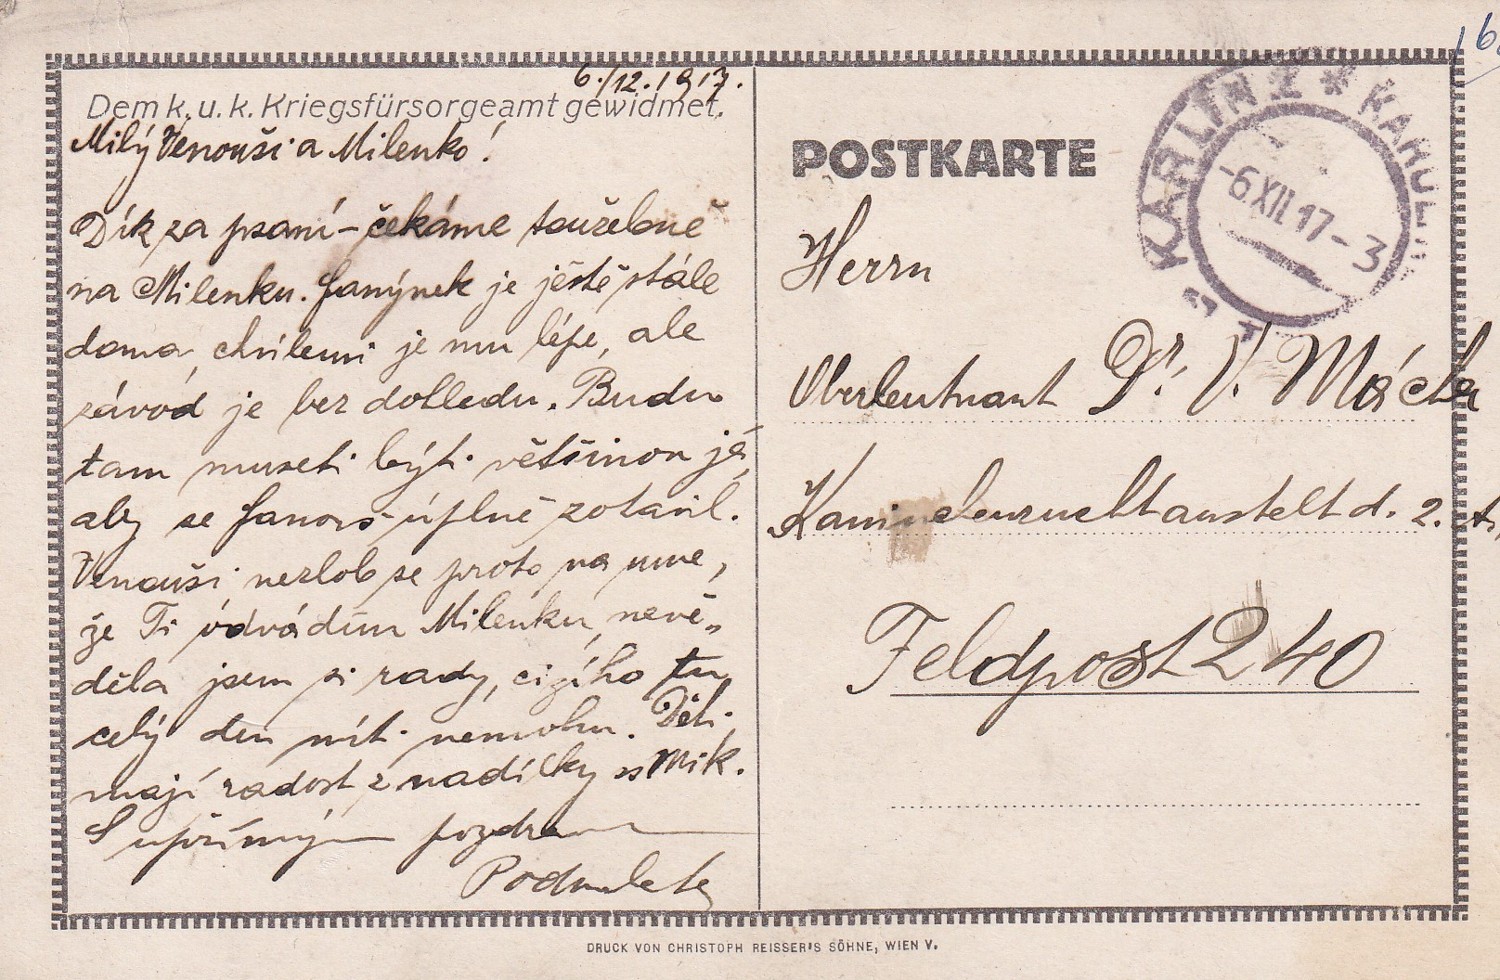 6./12.1917.
Dem k. u. k. Kriegsfürsorgeamt gewidmet.
Milý Venouši a Milenko!
Dík za psaní – čekáme toužebně
na Milenku. Fanýnek je ještě stále
doma, chvílemi je mu lépe, ale
závod je bez dohledu. Budu
tam museti býti většinou já,
aby se Fanouš úplně zotavil.
Venouši, nezlob se proto na mne,
že Ti odvádím Milenku, nevě-
děla jsem si rady, cizího tu
celý den míti nemohu. Děti
mají radost z nadílky sv Mik.
S upřímným pozdravem
POSTKARTE
KARLÍN 1 * KAROL
-6 XII 17 - 3
Herrn
Oberleutnant Dr. V. Mácha
Kaninchenzuchtanstalt d. 2. A.
Feldpost 240
DRUCK VON CHRISTOPH REISSER'S SÖHNE, WIEN V.